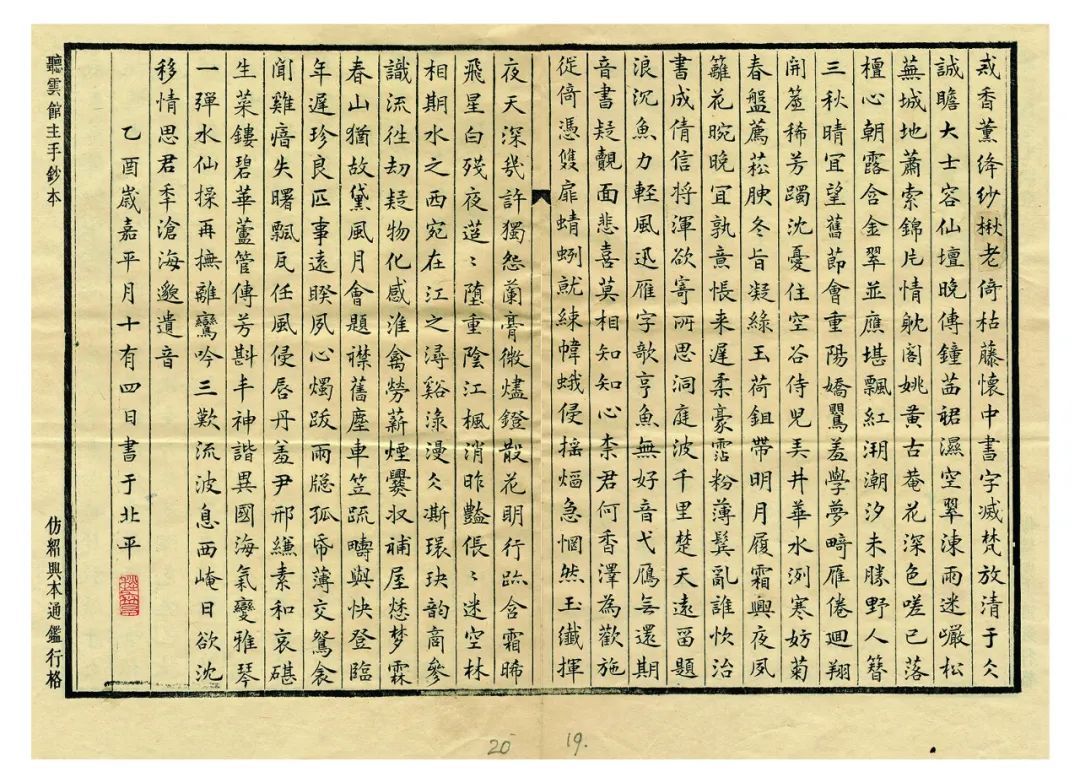 戎香薰绛紗楸老倚枯藤懷中書字滅梵放清于仌
誠瞻大士容仙壇晚傳鐘茁裙濕空翠涷雨迷巗松
蕪城地蕭索錦片情躭閣姚黃古菴花深色嗟已落
檀心朝露含金翠並應堪飄紅溯潮汐未勝野人簪
三秋晴宜望舊節會重陽嬌鸎羞學夢畸雁倦迴翔
開葢稀芳躅沈憂住空谷侍兒美井華水冽寒妨菊
春盤薦菘腴冬旨凝綠玉荷鉏帶明月履霜興夜夙
籬花晼晚宜孰意悵来遲柔豪霑粉薄鬂亂誰忺治
書成倩信將渾欲寄所思洞庭波千里楚天遠畱題
浪沉魚力輕風迅雁字歌亨魚無好音弋鴈無還期
音書疑覿面悲喜莫相知知心柰君何香澤為歡施
從倚憑雙扉蜻蛚就練幃蛾侵摇熘急惘然玉纖揮
夜天深幾許獨怨蘭膏微燼鐙散花眀行跡含霜晞
飛星白殘夜莚〻墮重陰江楓消昨豔倀〻迷空林
相期水之西宛在江之潯谿淥漫仌澌環玦韵啇參
識流徃刧疑物化感淮禽勞薪煙爨収補屋愁梦霖
春山猶故黛風月會題襟舊塵車笠疏疇與快登臨
年遲珍良匹事遠睽夙心燭跋雨牕孤帋薄交鴛衾
聞雞瘖失曙飄瓦任風侵唇丹羞尹邢縑素和哀碪
生菜鏤碧華蘆管傳芳斟丰神諧異國海氣變雅琴
一彈水仙操再撫離鸞吟三歎流波息西崦日欲沈
移情思君季滄海邈遺音
乙酉歲嘉平月十有四日書于北平
聽雲館主手鈔本
仿紹興本通鑑行格
20
19.